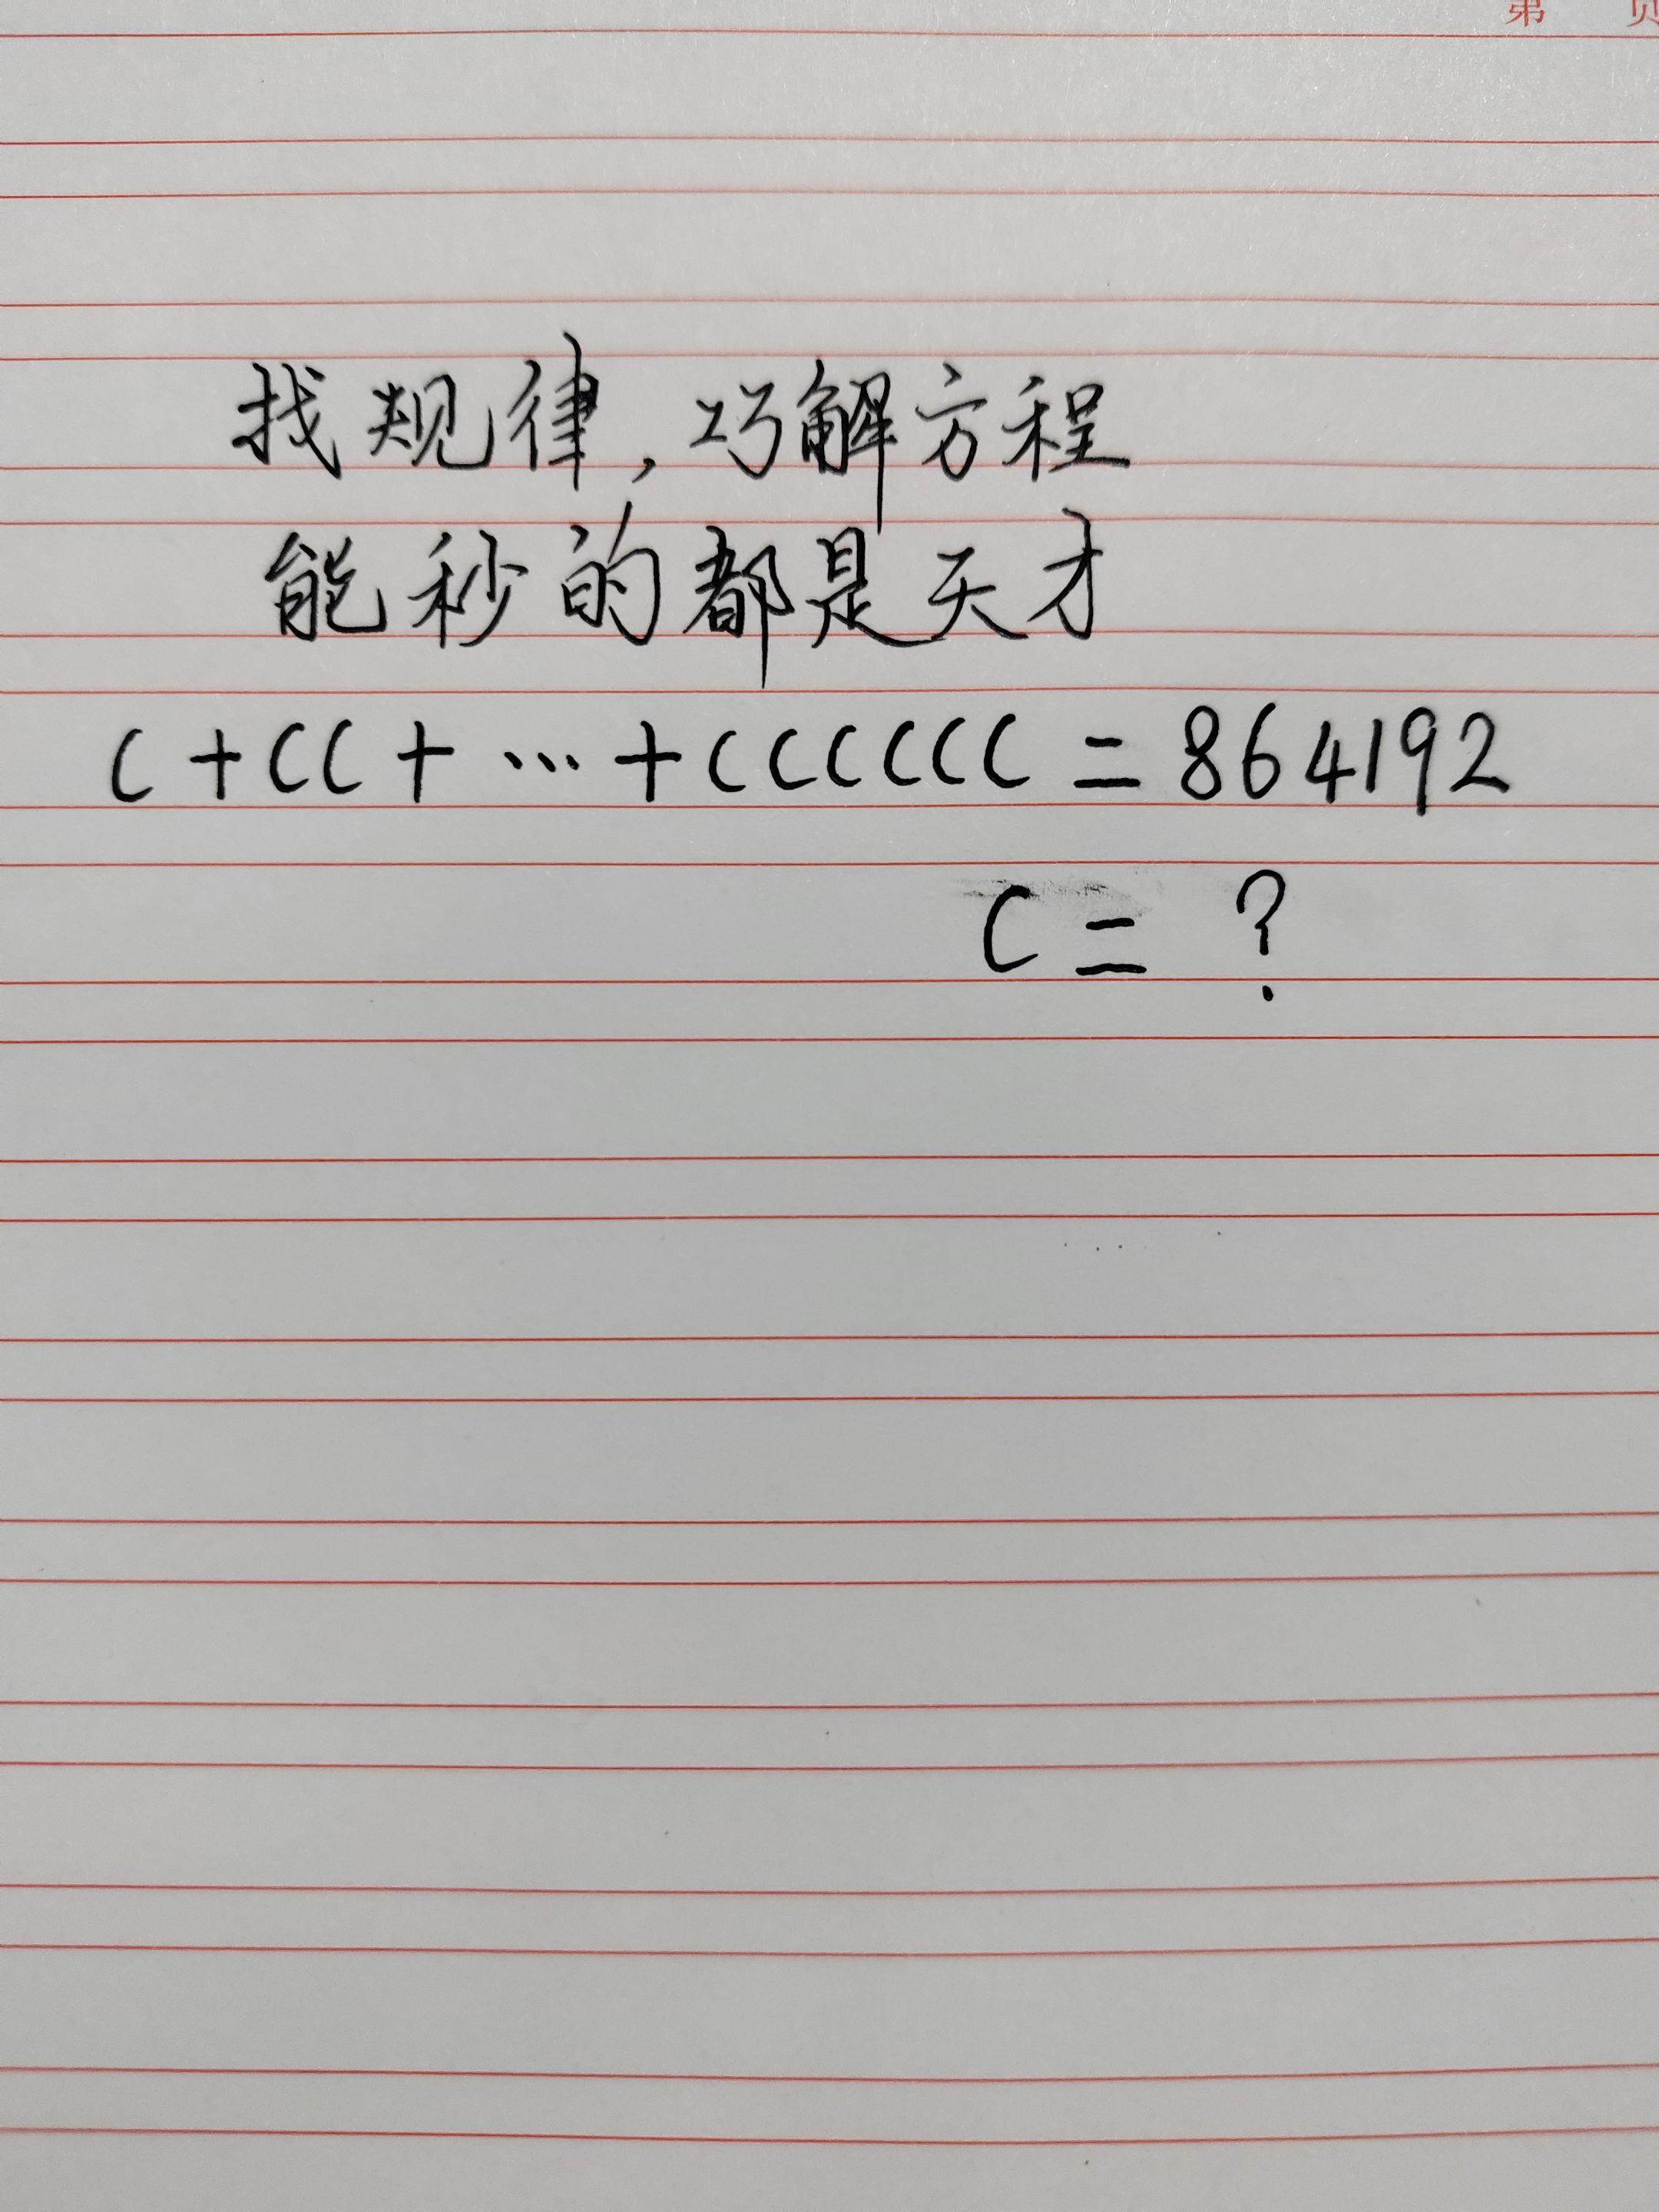 第 页
找规律,巧解方程
能秒的都是天才
C+CC+…+CCCCCC=864192
C=?